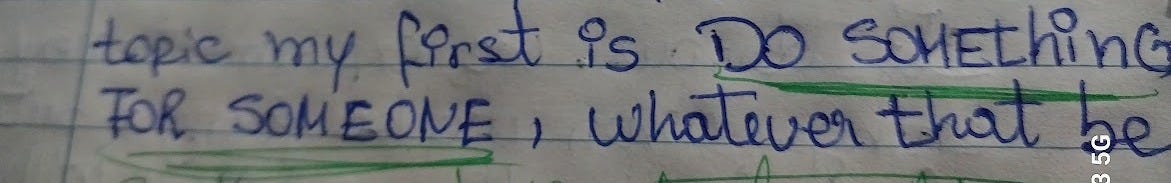 topic my first is DO SOMEthinG
FOR SOMEONE, whatever that be
3 5G